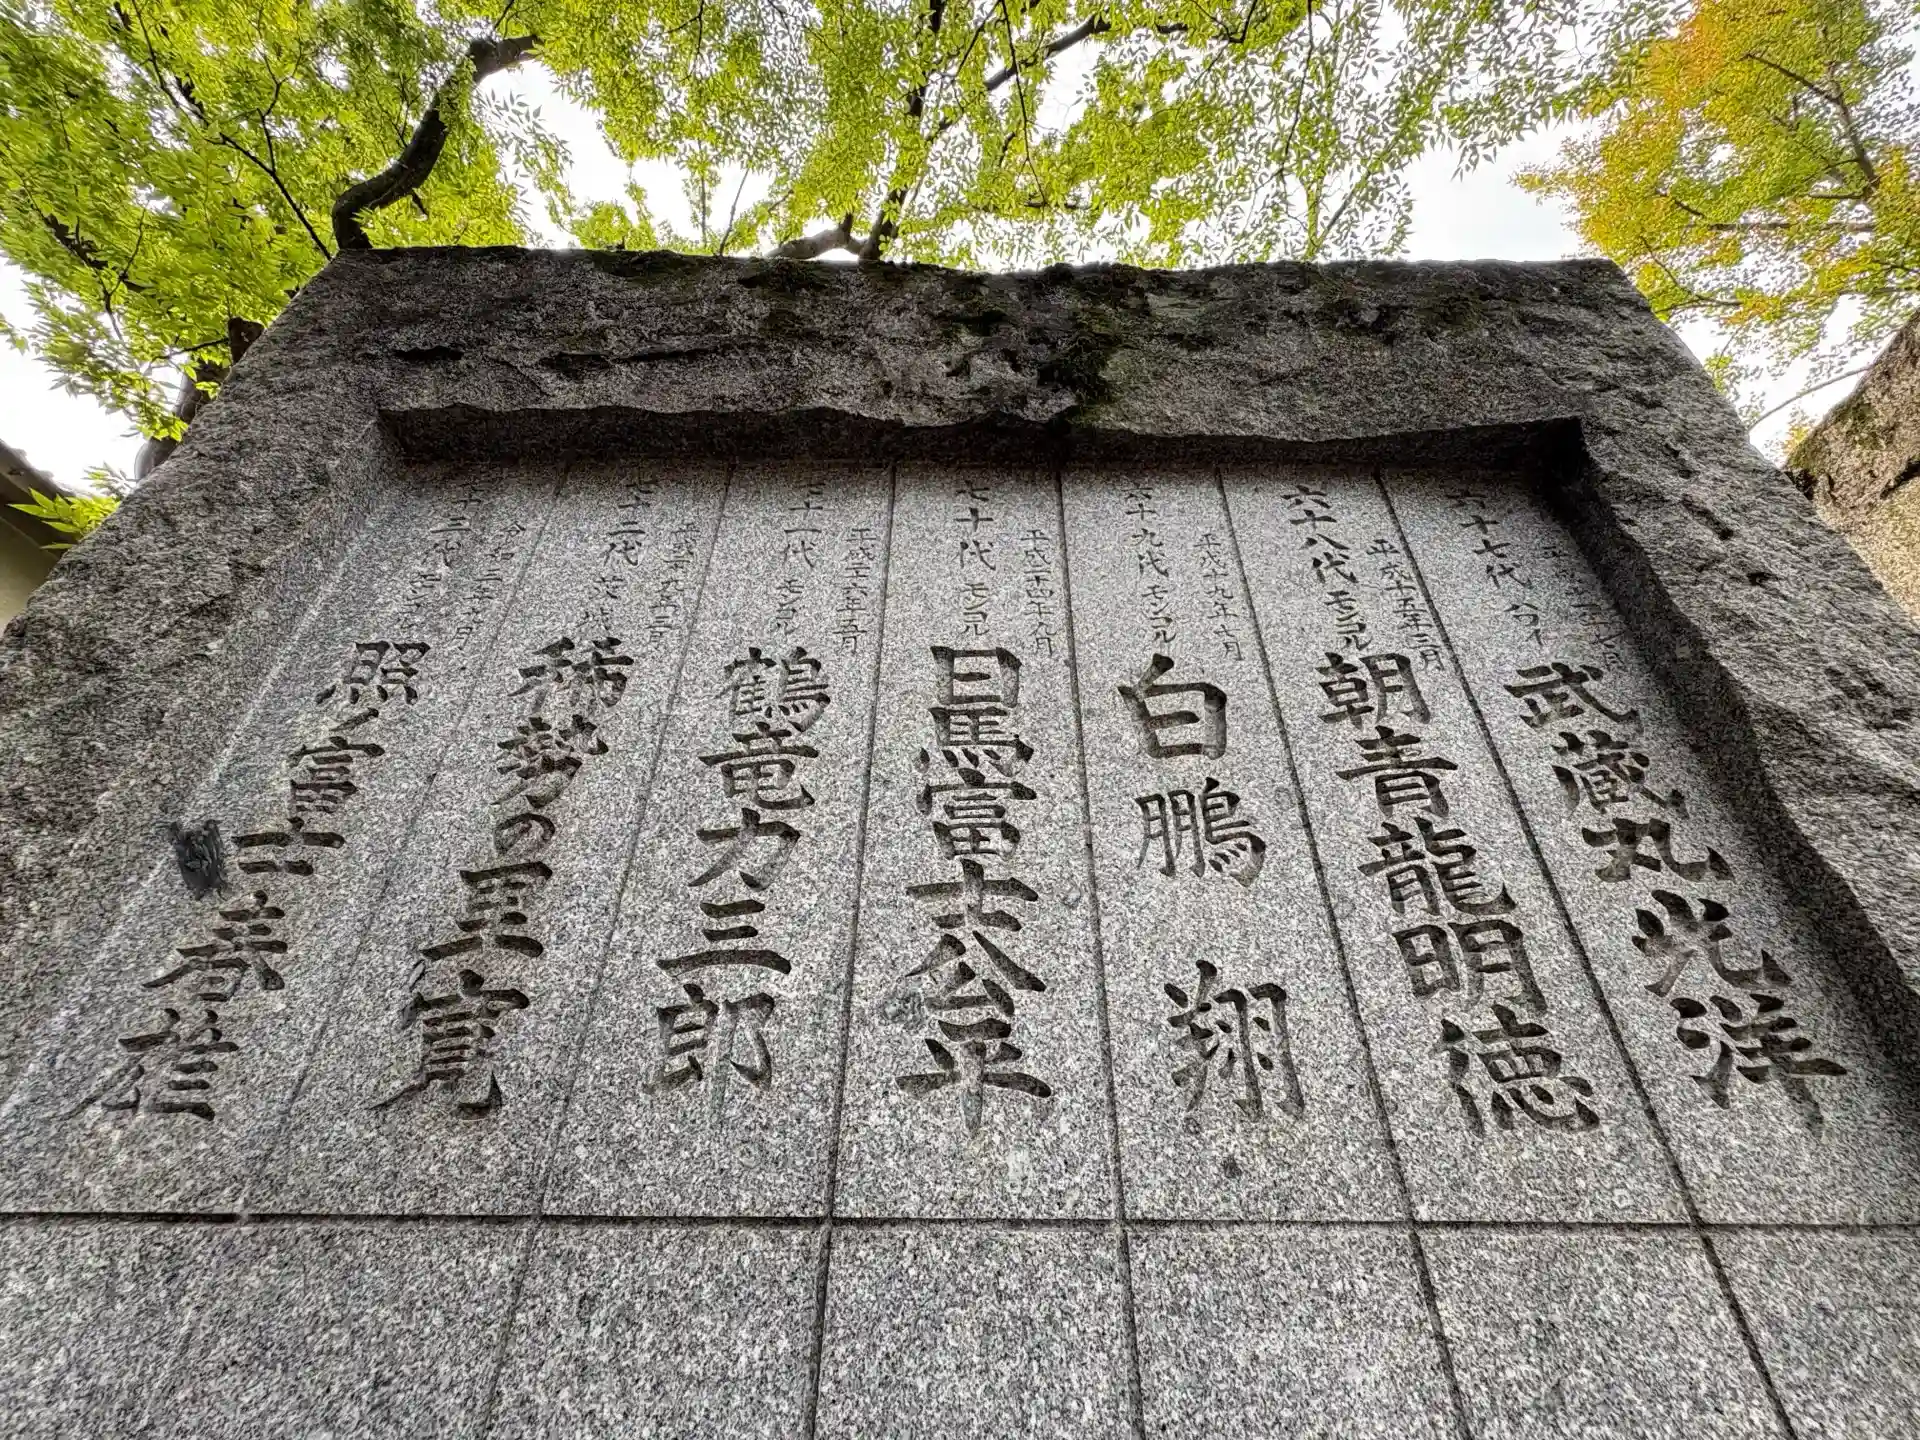 六十七代 ハワイ
武蔵丸光洋
平成十五年三月
六十八代 モンゴル
朝青龍明徳
平成十九年七月
六十九代 モンゴル
白鵬 翔
平成二十四年九月
七十代 モンゴル
日馬富士公平
平成二十六年五月
七十一代 モンゴル
鶴竜力三郎
平成二十九年三月
七十二代 茨城
稀勢の里寛
令和三年七月
七十三代 モンゴル
照ノ富士春雄